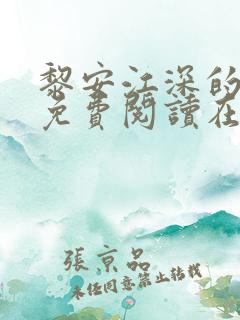 黎安江深的
免費閱讀在
張京品
未經同意禁止轉載